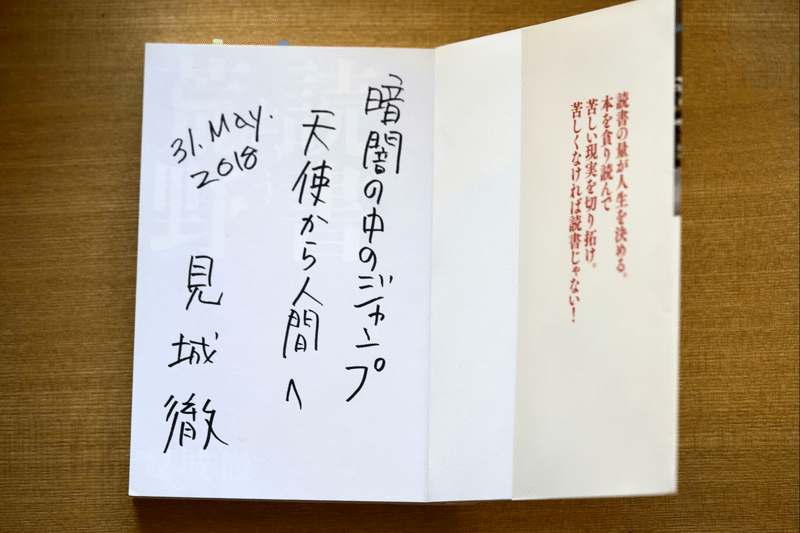 読書の量が人生を決める。
本を貪り読んで
苦しい現実を切り拓け。
苦しくなければ読書じゃない！
暗闇の中のジャンプ
天使から人間へ
31. May.
2018
見城徹